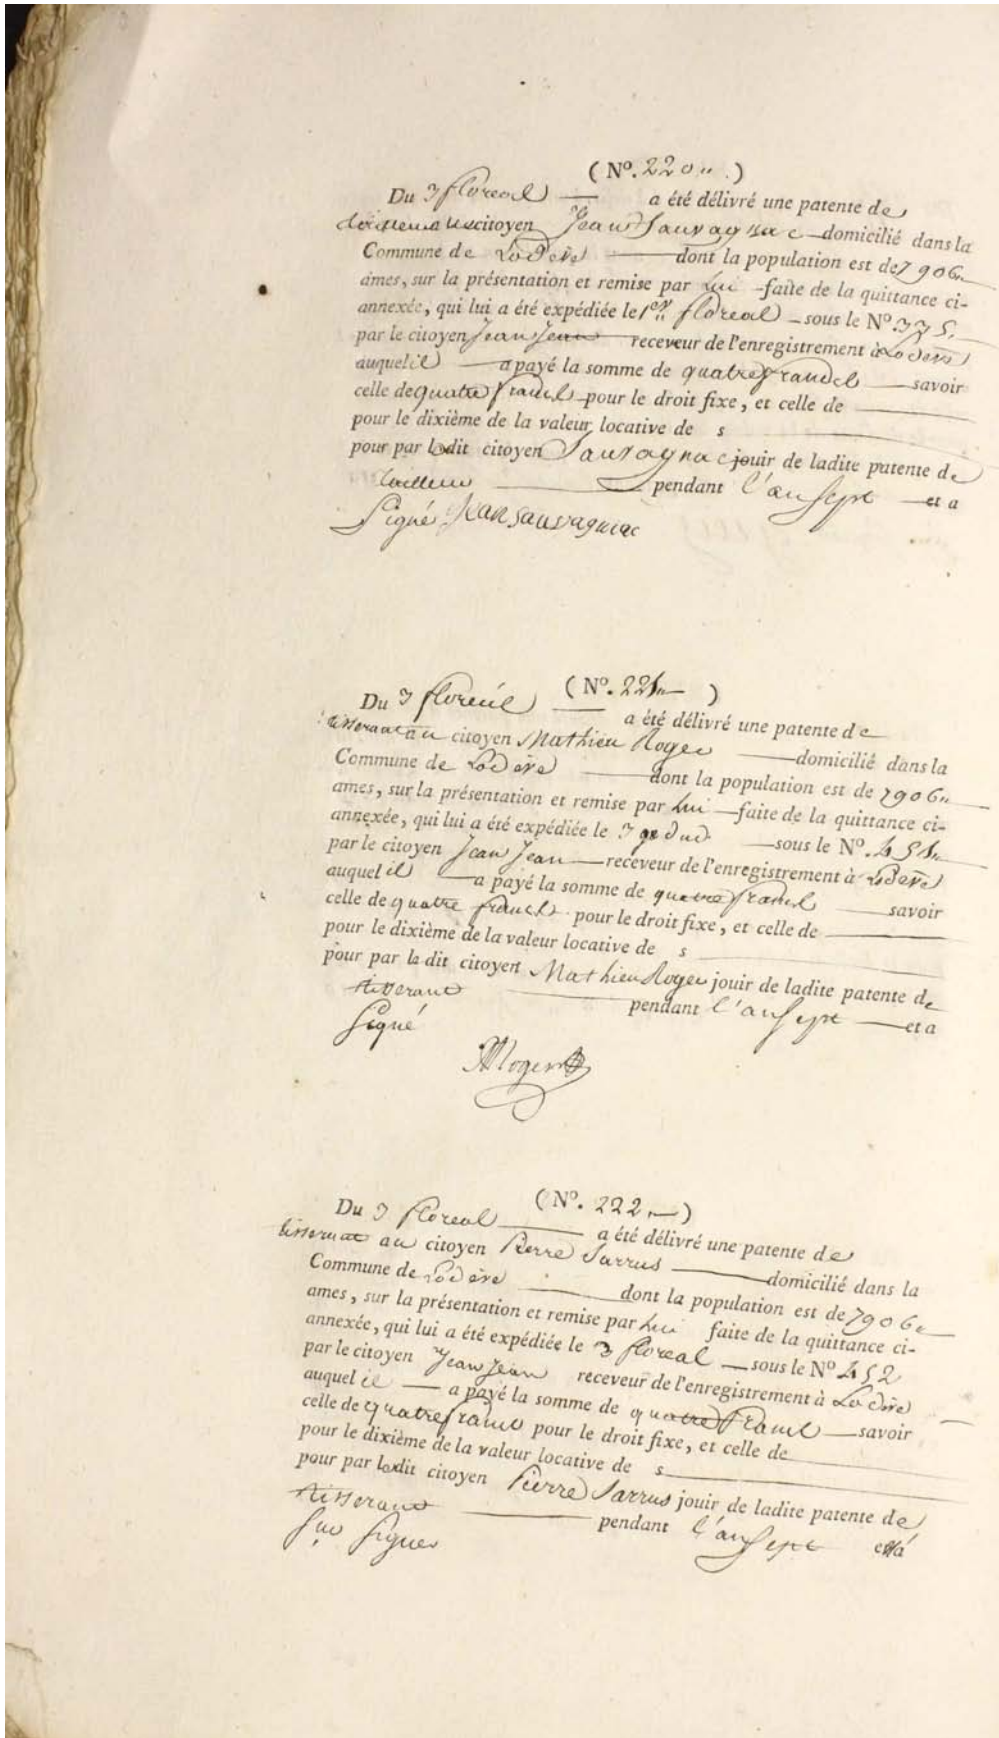 (N°. 220 „ )
Du 3 floreal — a été délivré une patente de
au citoyen Jean Sauvagnac — domicilié dans la
Commune de Lodève — dont la population est de 7906 „
ames, sur la présentation et remise par lui — faite de la quittance ci-
annexée, qui lui a été expédiée le 1er floreal — sous le N°. 375 „
par le citoyen Jean Jean — receveur de l'enregistrement à Lodève
auquel il — a payé la somme de quatre francs — savoir
celle de quatre francs — pour le droit fixe, et celle de —
pour le dixième de la valeur locative de s —
pour par ledit citoyen Sauvagnac jouir de ladite patente de
tailleur — pendant l'an sept — et a
Signé Jean Sauvagniac
(N°. 221 „ )
Du 3 floreal — a été délivré une patente de
tisserant au citoyen Mathieu Roger — domicilié dans la
Commune de Lodève — dont la population est de 7906 „
ames, sur la présentation et remise par lui — faite de la quittance ci-
annexée, qui lui a été expédiée le 3 — sous le N°. 451 „
par le citoyen Jean Jean — receveur de l'enregistrement à Lodève
auquel il — a payé la somme de quatre francs — savoir
celle de quatre francs pour le droit fixe, et celle de —
pour le dixième de la valeur locative de s —
pour par le dit citoyen Mathieu Roger jouir de ladite patente de
tisserant — pendant l'an sept — et a
signé
MRoger
(N°. 222 „ )
Du 3 floreal — a été délivré une patente de
tisserant au citoyen Pierre Sarrus — domicilié dans la
Commune de Lodève — dont la population est de 7906 „
ames, sur la présentation et remise par lui faite de la quittance ci-
annexée, qui lui a été expédiée le 3 floreal — sous le N° 452
par le citoyen Jean Jean receveur de l'enregistrement à Lodève
auquel il — a payé la somme de quatre francs — savoir
celle de quatre francs pour le droit fixe, et celle de —
pour le dixième de la valeur locative de s —
pour par ledit citoyen Pierre Sarrus jouir de ladite patente de
tisserant — pendant l'an sept et a
Signer